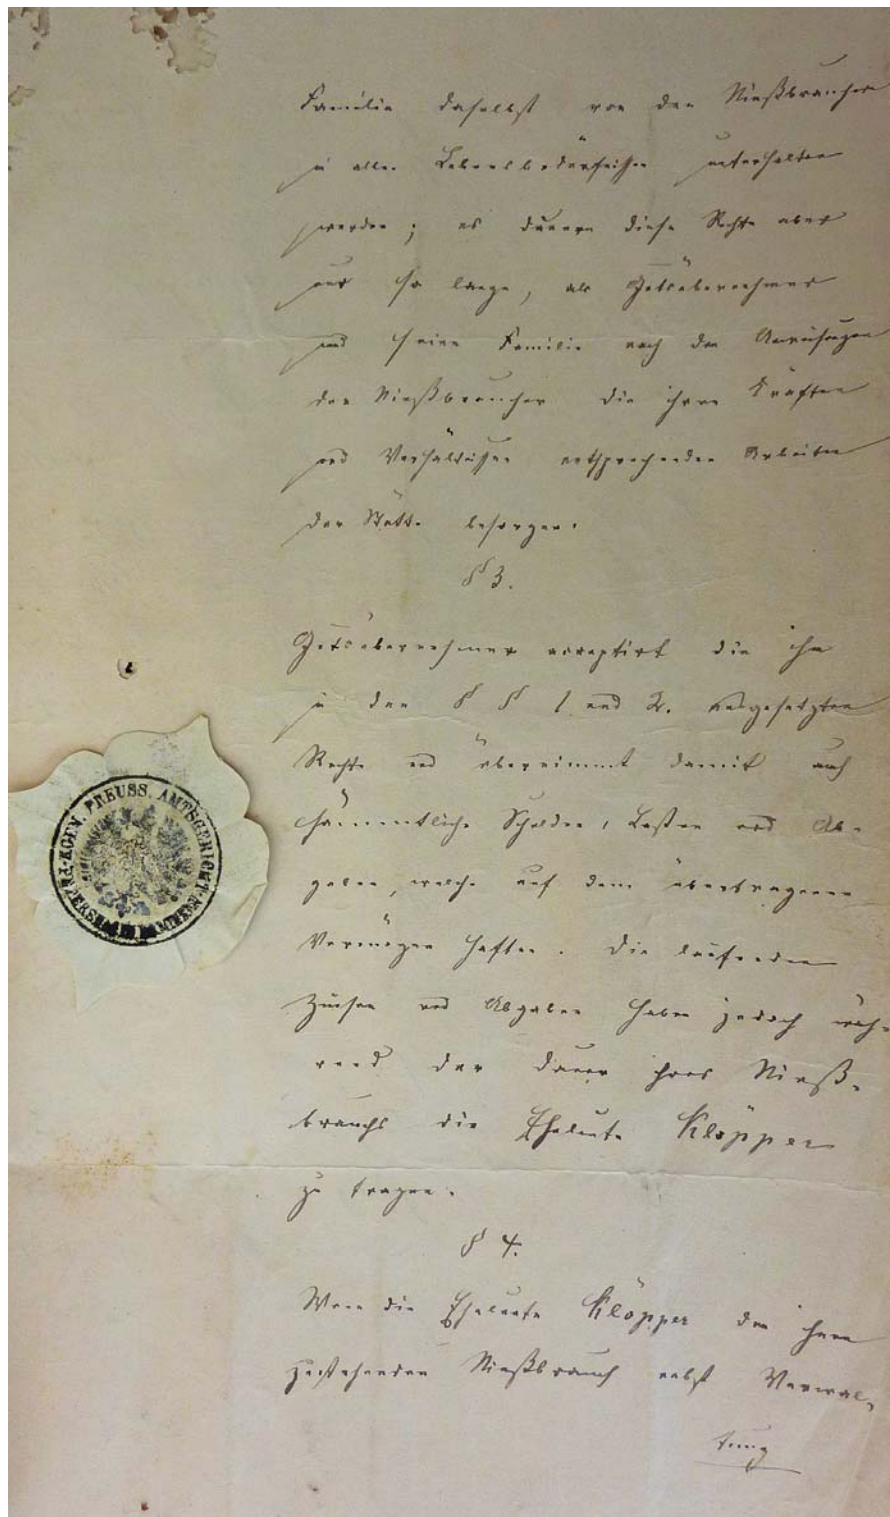 Familie daselbst von den Nießbraucher
in allen Lebensbedürfnissen unterhalten
werden; es dauern diese Rechte aber
nur so lange, als Gutsübernehmer
und seine Familie nach den Anweisungen
der Nießbraucher die ihren Kräften
und Verhältnissen entsprechenden Arbeiten
der Stätte besorgen.
§ 3.
Gutsübernehmer acceptirt die ihm
in den § § 1 und 2. ausgesetzten
Rechte und übernimmt damit auch
sämmtliche Schulden, Lasten und Ab-
gaben, welche auf dem übertragenen
Vermögen haften. Die laufenden
Zinsen und Abgaben haben jedoch wäh-
rend der Dauer ihres Nieß-
brauchs die Eheleute Klöpper
zu tragen.
§ 4.
Wenn die Eheleute Klöpper den ihnen
zustehenden Nießbrauch nebst Verwal-
tung
KGEN. PREUSS. AMTSGERICHT